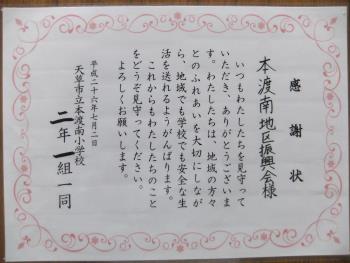 感謝状
本渡南地区振興会様
いつもわたしたちを見守って
いただき、ありがとうございま
す。わたしたちは、地域の方々
とのふれあいを大切にしなが
ら、地域でも学校でも安全な生
活を送れるようがんばります。
これからもわたしたちのこと
をどうぞ見守ってください。
よろしくお願いします。
平成二十六年七月二日
天草市立本渡南小学校
二年一組一同